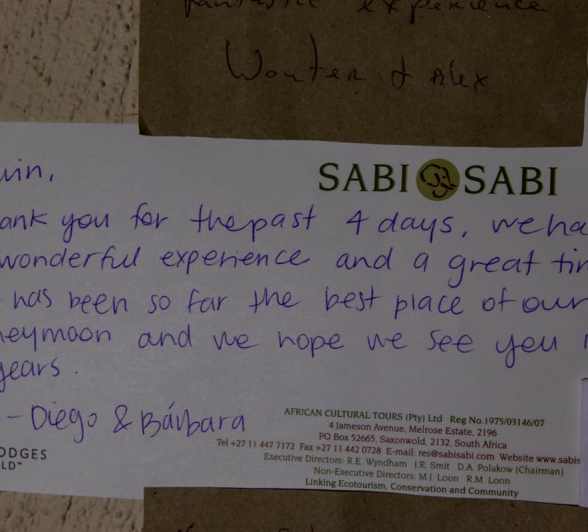 fantastic experience
Wouter & Alex
SABI SABI
ank you for the past 4 days, we ha
wonderful experience and a great tim
has been so far the best place of our
neymoon and we hope we see you
years.
- Diego & Bárbara
AFRICAN CULTURAL TOURS (Pty) Ltd Reg No.1975/03146/07
4 Jameson Avenue, Melrose Estate, 2196
PO Box 52665, Saxonwold, 2132, South Africa
Tel +27 11 447 7172 Fax +27 11 442 0728 E-mail: res@sabisabi.com Website www.sabis
Executive Directors: R.E. Wyndham I.R. Smit D.A. Polakow (Chairman)
Non-Executive Directors: M.J. Loon R.M. Loon
Linking Ecotourism, Conservation and Community
ODGES
LD™